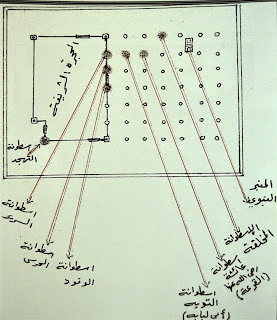 الحجرة الشريفة
اسطوانة
التهجد
المنبر
النبوي
الاسطوانة
المخلقة
اسطوانة
عائشة
رضي الله عنها
(القرعة)
اسطوانة
التوبة
(أبي لبابة)
اسطوانة
الوفود
اسطوانة
الحرس
اسطوانة
السرير